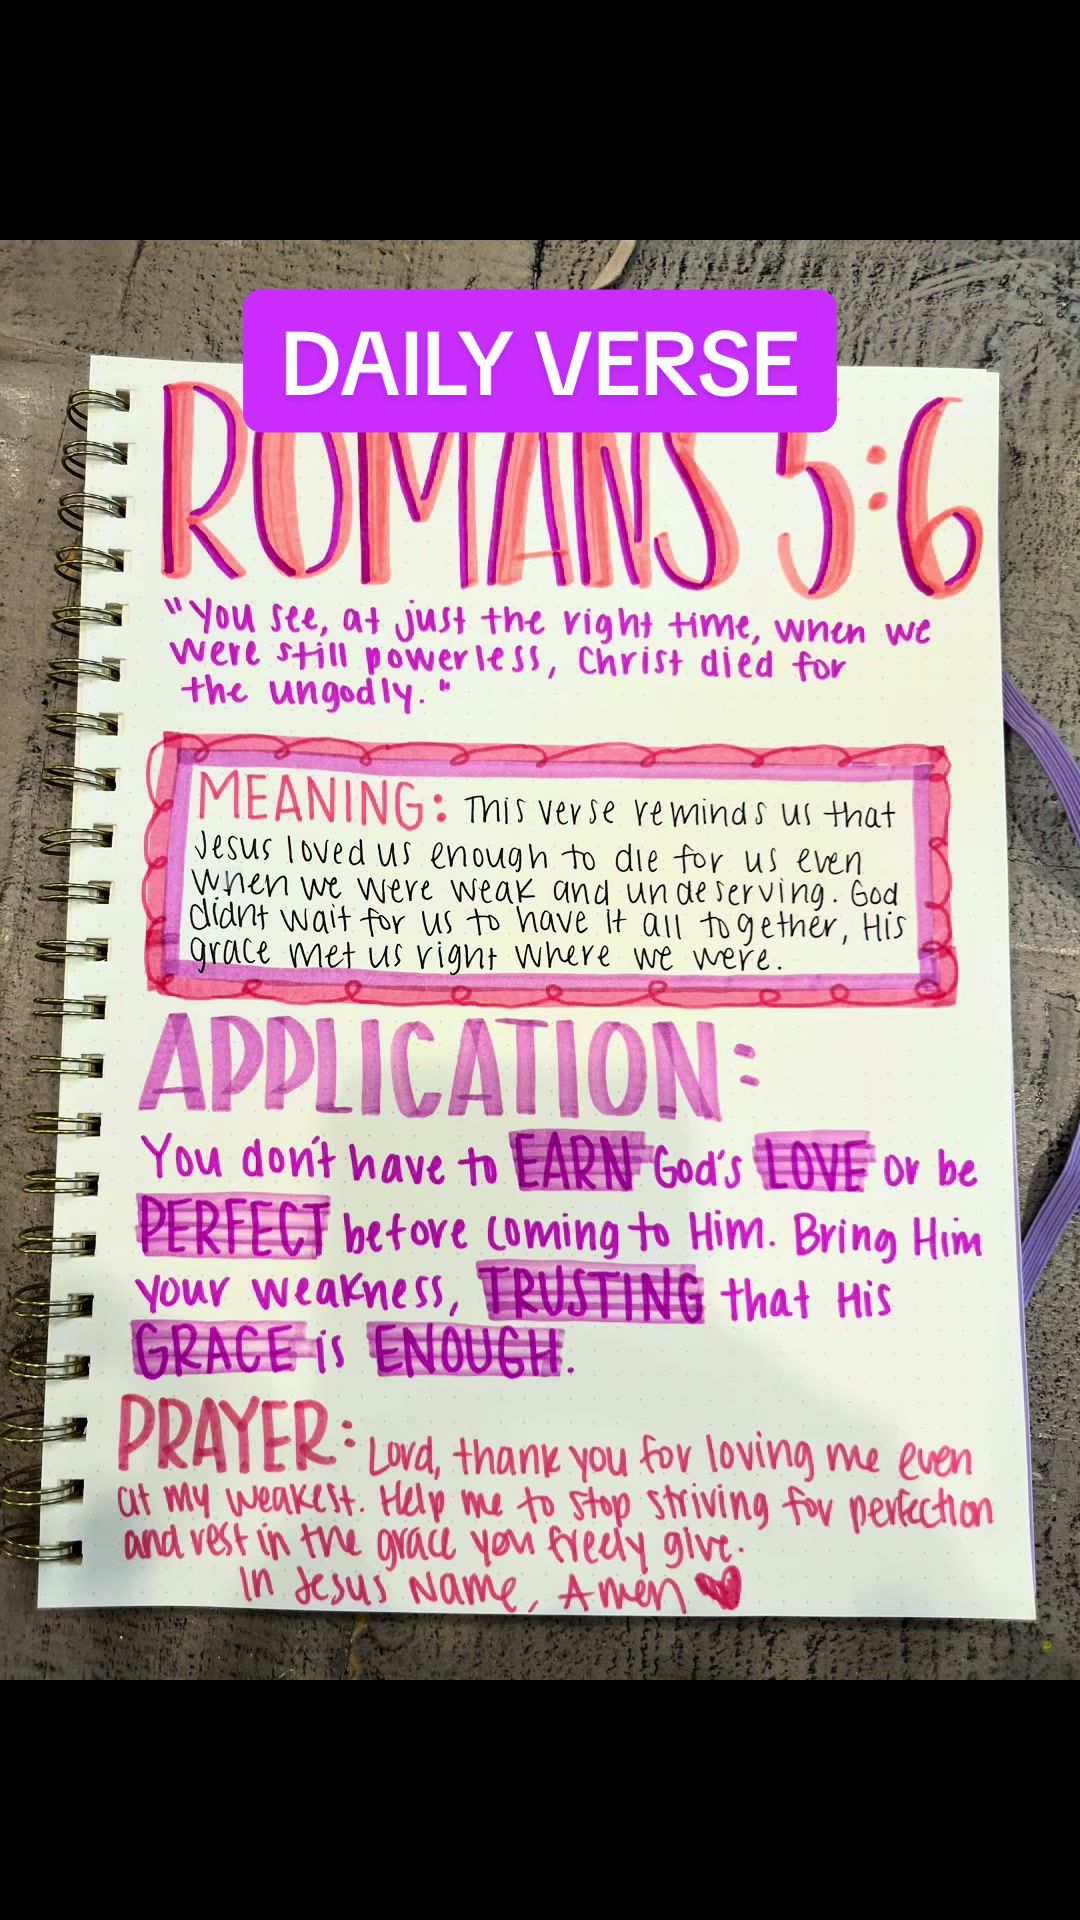 DAILY VERSE
ROMANS 5:6
"You see, at just the right time, when we
were still powerless, Christ died for
the ungodly."
MEANING: This verse reminds us that
Jesus loved us enough to die for us even
when we were weak and undeserving. God
didnt wait for us to have it all together, His
grace met us right where we were.
APPLICATION:
You don't have to EARN God's LOVE or be
PERFECT before coming to Him. Bring Him
your weakness, TRUSTING that His
GRACE is ENOUGH.
PRAYER: Lord, thank you for loving me even
at my weakest. Help me to stop striving for perfection
and rest in the grace you freely give.
In Jesus Name, Amen